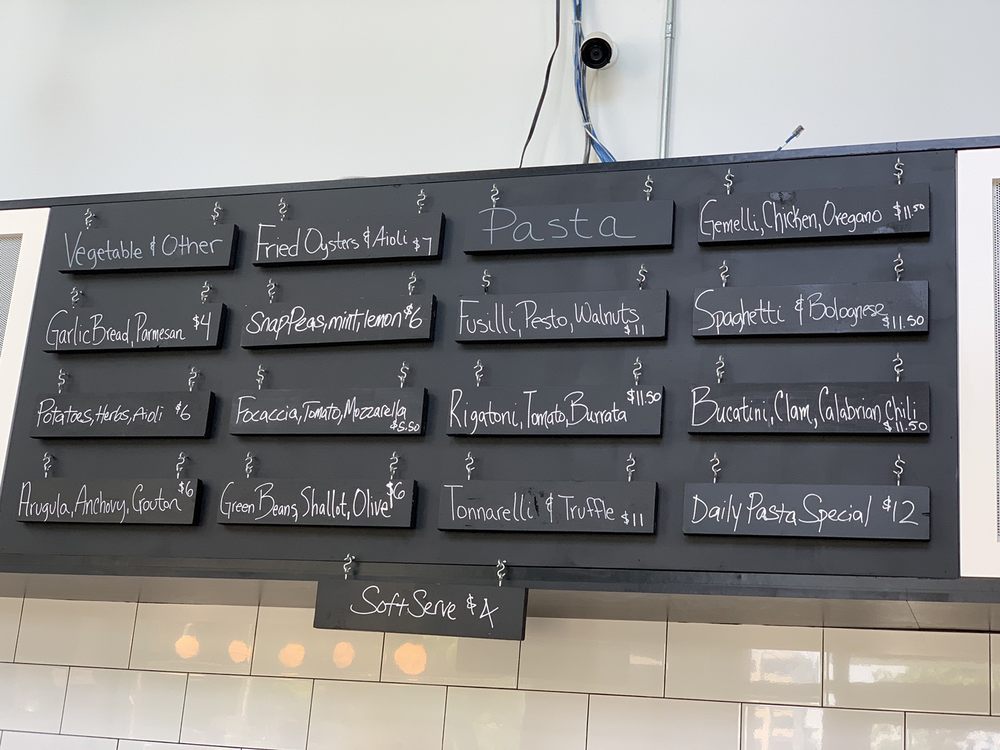 Vegetable & Other
Garlic Bread, Parmesan $4
Potatoes, Herbs, Aioli $6
Arugula, Anchovy, Crouton $6
Fried Oysters & Aioli $7
Snap Peas, mint, lemon $6
Focaccia, Tomato, Mozzarella
$5.50
Green Beans, Shallot, Olive $6
Pasta
Fusilli, Pesto, Walnuts
$11
Rigatoni, Tomato, Burrata $11.50
Tonnarelli & Truffle $11
Gemelli, Chicken, Oregano $11.50
Spaghetti & Bolognese
$11.50
Bucatini, Clam, Calabrian Chili
$11.50
Daily Pasta Special $12
Soft Serve $4